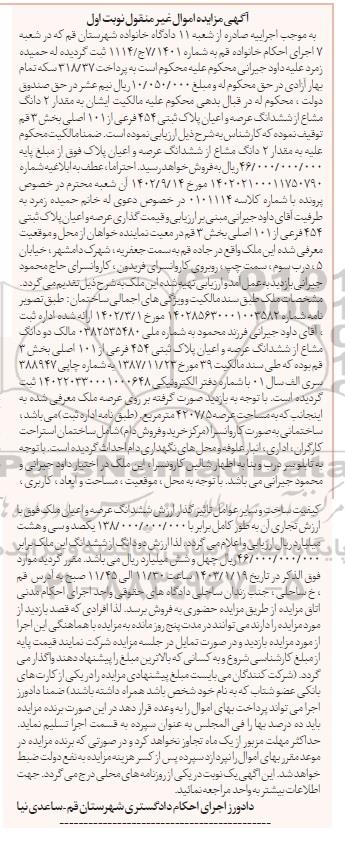 آگهی مزایده اموال غیر منقول نوبت اول
به موجب اجراییه صادره از شعبه ۱۱ دادگاه خانواده شهرستان قم که در شعبه
۷ اجرای احکام خانواده قم به شماره ۷/۱۴۰۱ج/۱۱۱۴ ثبت گردیده له حمیده
زمرد علیه داود جیرانی محکوم علیه محکوم است به پرداخت ۳۱۸/۳۷ سکه تمام
بهار آزادی در حق محکوم له و مبلغ ۱۰/۰۵۰/۰۰۰ ریال نیم عشر در حق صندوق
دولت ، محکوم له در قبال بدهی محکوم علیه مالکیت ایشان به مقدار ۲ دانگ
مشاع از ششدانگ عرصه و اعیان پلاک ثبتی ۴۵۴ فرعی از ۱۰۱ اصلی بخش ۳ قم
توقیف نموده که کارشناس به شرح ذیل ارزیابی نموده است. ضمنا مالکیت محکوم
علیه به مقدار ۲ دانگ مشاع از ششدانگ عرصه و اعیان پلاک فوق از مبلغ پایه
۴۶/۰۰۰/۰۰۰/۰۰۰ ریال به فروش خواهد رسید. احتراما، عطف به ابلاغیه شماره
۱۴۰۲۰۲۱۰۰۰۱۱۷۵۰۷۹۰ مورخ ۱۴۰۲/۹/۱۴ آن شعبه محترم در خصوص
پرونده با شماره کلاسه ۰۱۰۱۱۱۴ در خصوص دعوی له خانم حمیده زمرد به
طرفیت آقای داود جیرانی مبنی بر ارزیابی و قیمت گذاری عرصه و اعیان پلاک ثبتی
۴۵۴ فرعی از ۱۰۱ اصلی بخش ۳ قم در معیت نماینده خواهان از محل و موقعیت
معرفی شده این ملک واقع در جاده قم به سمت جعفریه ، شهرک دامشهر ، خیابان
۵ ، درب سوم ، سمت چپ ، روبروی کاروانسرای فریدون ، کاروانسرای حاج محمود
جیرانی بازدید به عمل آمد و ارزیابی تهیه شده این ملک به شرح ذیل تقدیم می گردد.
مشخصات ملک طبق سند مالکیت و ویژگی های اجمالی ساختمان : طبق تصویر
نامه شماره ۱۴۰۲۸۵۶۳۰۰۰۱۰۰۳۵۸۲ مورخ ۱۴۰۲/۳/۱ ارائه شده اداره ثبت
، آقای داود جیرانی فرزند محمود به شماره ملی ۰۳۸۲۵۳۵۴۸۰ مالک دو دانگ
مشاع از ششدانگ عرصه و اعیان پلاک ثبتی ۴۵۴ فرعی از ۱۰۱ اصلی بخش ۳
قم بوده که طی سند مالکیت ۳۹ مورخ ۱۳۸۷/۱۱/۲۳ به شماره چاپی ۳۸۸۹۴۷
سری الف سال ۰۱ با شماره دفتر الکترونیکی ۱۴۰۲۲۰۳۳۰۰۰۱۰۰۰۶۴۸ ثبت
گردیده است. با توجه به بازدید صورت گرفته بر روی عرصه ملک معرفی شده به
اینجانب که به مساحت عرصه ۴۲۰۷/۵ متر مربع. (طبق نامه اداره ثبت) می باشد ،
ساختمانی به صورت کاروانسرا (مرکز خرید و فروش دام) شامل ساختمان استراحت
کارگران ، اداری ، انبار علوفه و محل های نگهداری دام احداث گردیده است. با توجه
به تابلو سر درب و بنا به اظهار شاغلین کاروانسرا، این ملک در اختیار داود جیرانی و
محمود جیرانی می باشد. با توجه به محل ، موقعیت ، مساحت و ابعاد ، کاربری ،
کیفیت ساخت و سایر عوامل تاثیرگذار ارزش ششدانگ عرصه و اعیان ملک فوق با
ارزش تجاری آن به طور کامل برابر با ۱۳۸/۰۰۰/۰۰۰/۰۰۰ یکصد و سی و هشت
میلیارد ریال ارزیابی و اعلام می گردد، لذا ارزش دو دانگ از ششدانگ این ملک برابر
۴۶/۰۰۰/۰۰۰/۰۰۰ ریال چهل و شش میلیارد ریال می باشد. مقرر گردید موارد
فوق الذکر در تاریخ ۱۴۰۳/۱/۱۹ ساعت ۱۱/۳۰ الی ۱۱/۴۵ صبح به آدرس قم
، خ ساحلی ، جنب زندان ساحلی دادگاه های حقوقی واحد اجرای احکام مدنی
اتاق مزایده از طریق مزایده حضوری به فروش برسد. لذا افرادی که قصد بازدید از
مورد مزایده را دارند می توانند در مدت پنج روز مانده به مزایده با هماهنگی این اجرا
از مورد مزایده بازدید و در صورت تمایل در جلسه مزایده شرکت نمایند قیمت پایه
از مبلغ کارشناسی شروع و به کسانی که بالاترین مبلغ را پیشنهاد دهند واگذار می
گردد. (شرکت کنندگان می بایست مبلغ پیشنهادی مزایده را در یکی از کارت های
بانکی عضو شتاب که به نام خود شخص باشد همراه داشته باشند) ضمنا دادورز
اجرا می تواند پرداخت بهای اموال را به وعده قرار دهد در این صورت برنده مزایده
باید ده درصد بها را فی المجلس به عنوان سپرده به قسمت اجرا تسلیم نماید.
حداکثر مهلت مزبور از یک ماه تجاوز نخواهد کرد و در صورتی که برنده مزایده در
موعد مقرر بهای اموال را نپردازد سپرده پس از کسر هزینه مزایده به نفع دولت ضبط
خواهد شد. این آگهی یک نوبت در یکی از روزنامه های محلی درج می گردد. جهت
اطلاعات بیشتر به واحد مراجعه نمائید.
دادورز اجرای احکام دادگستری شهرستان قم - ساعدی نیا